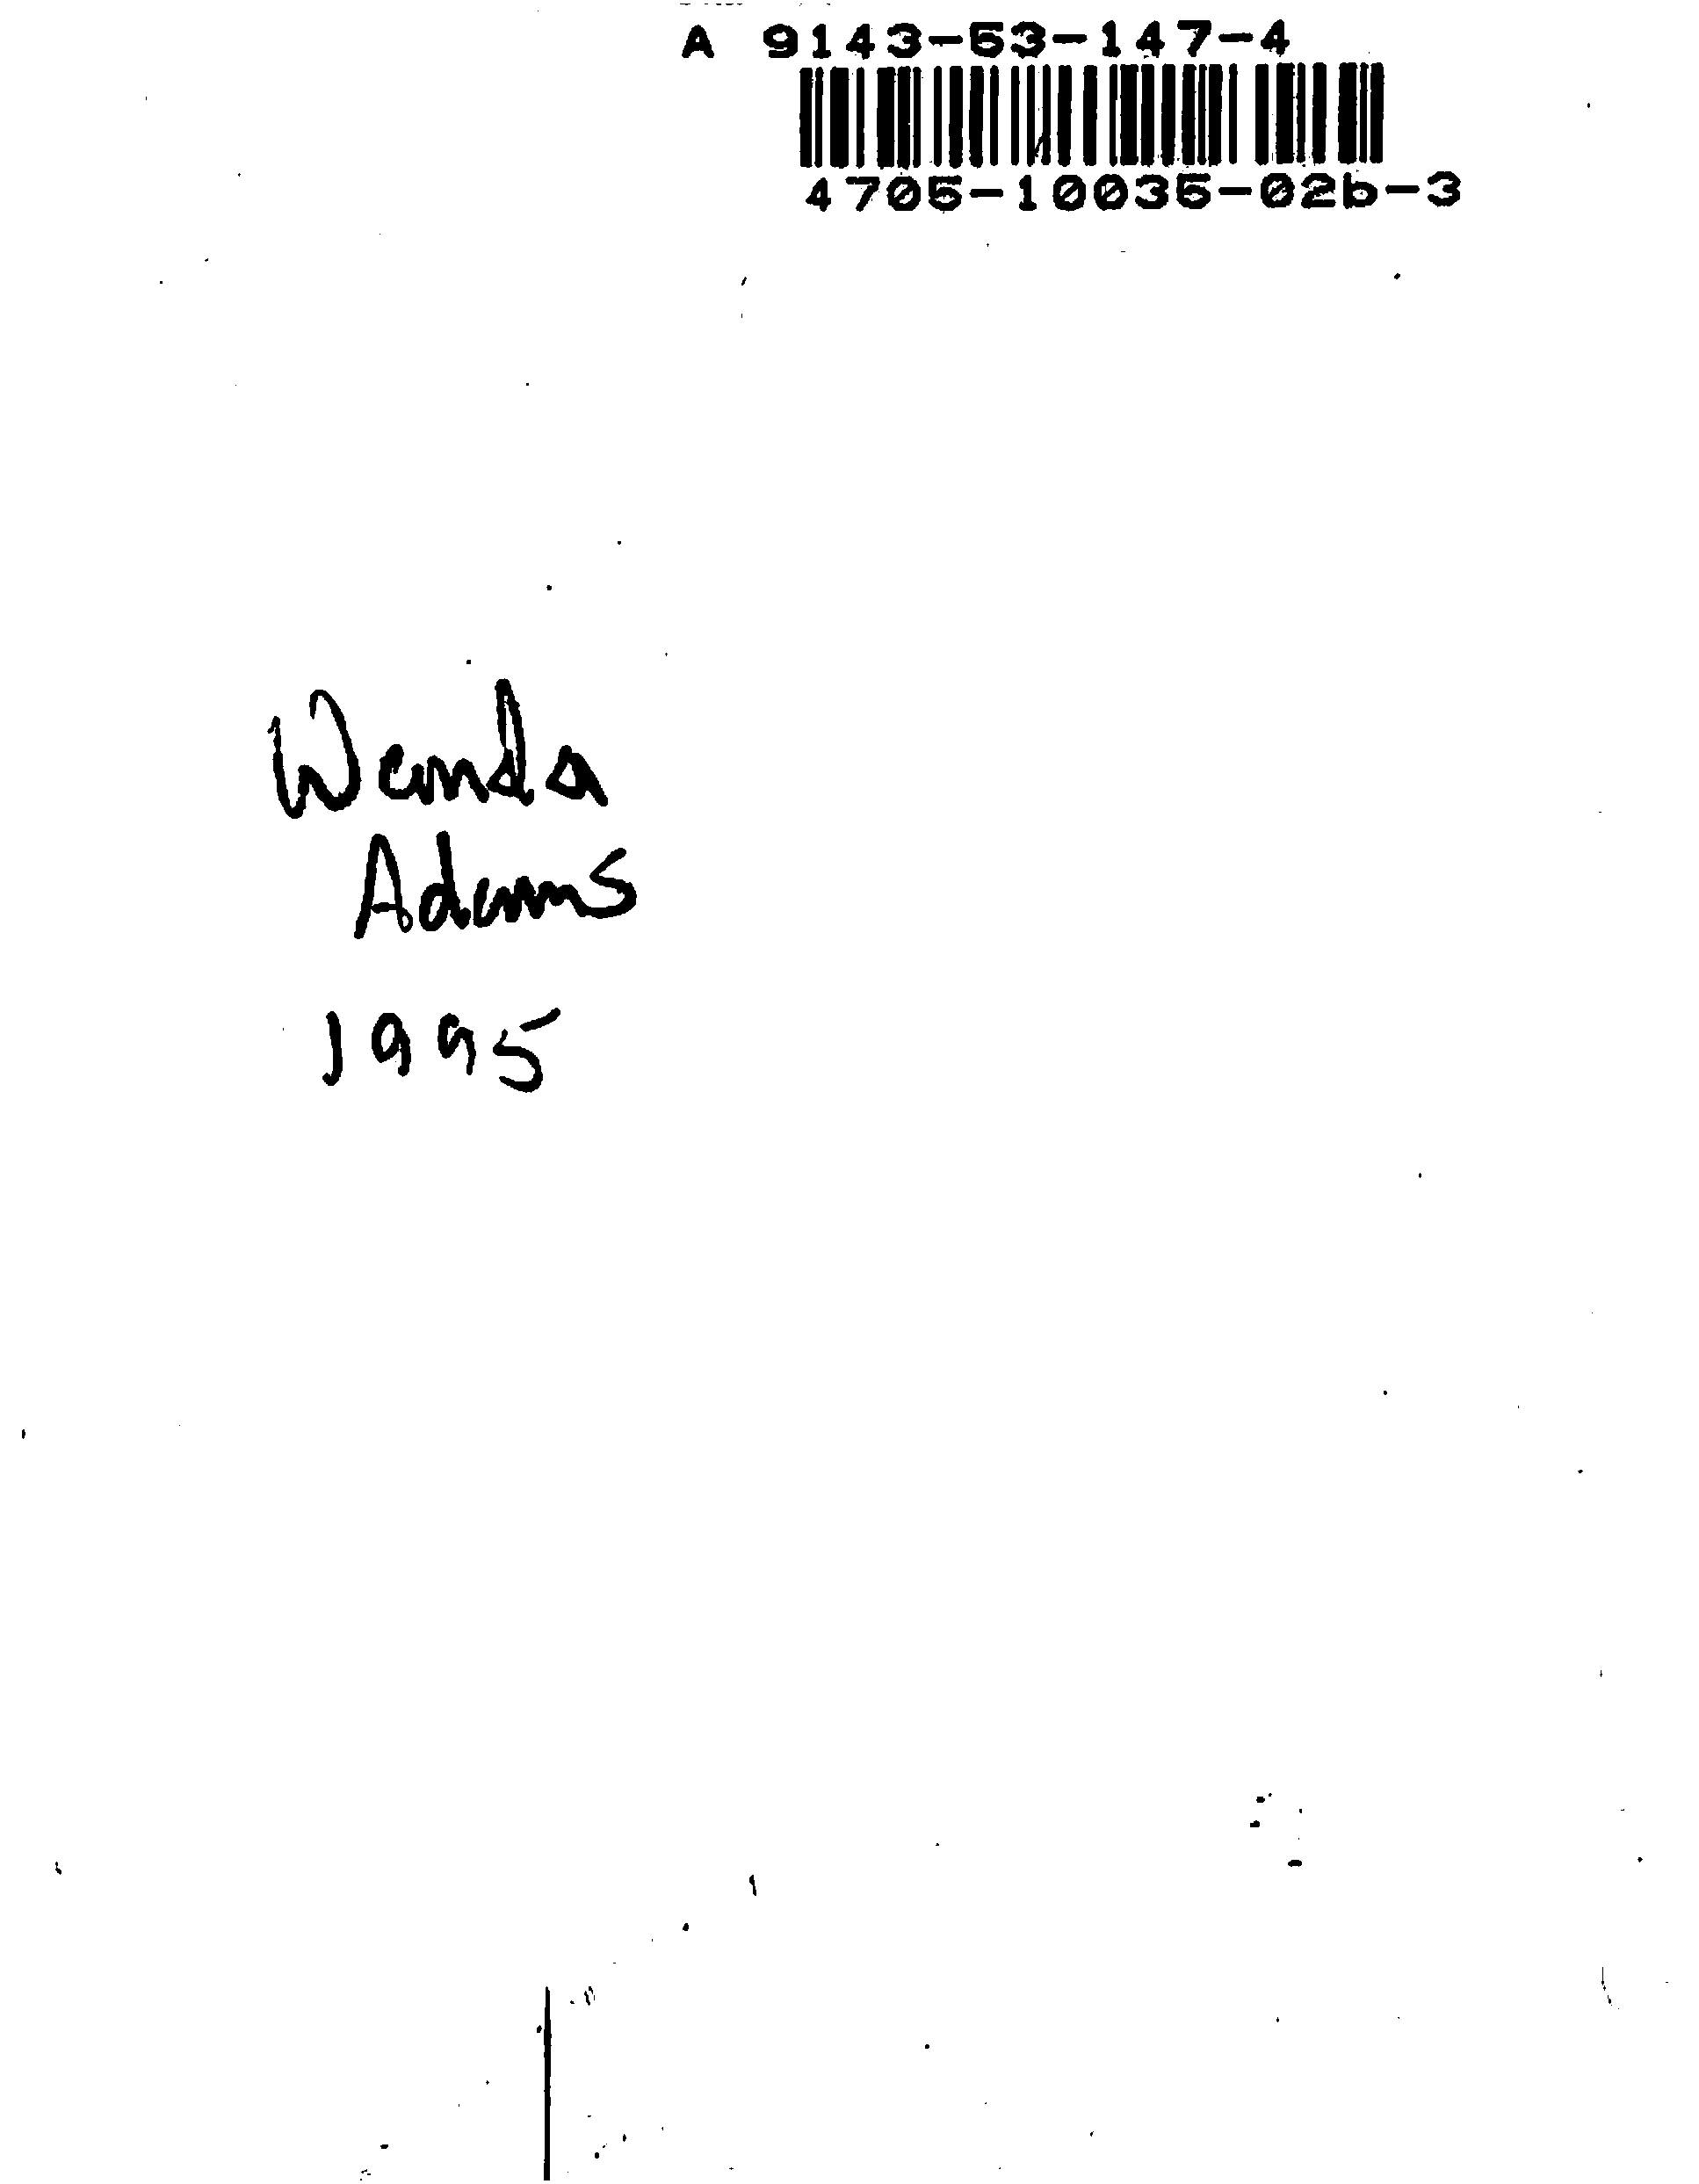 A 9143-53-147-4
4705-10035-02b-3
Wanda
Adams
1995